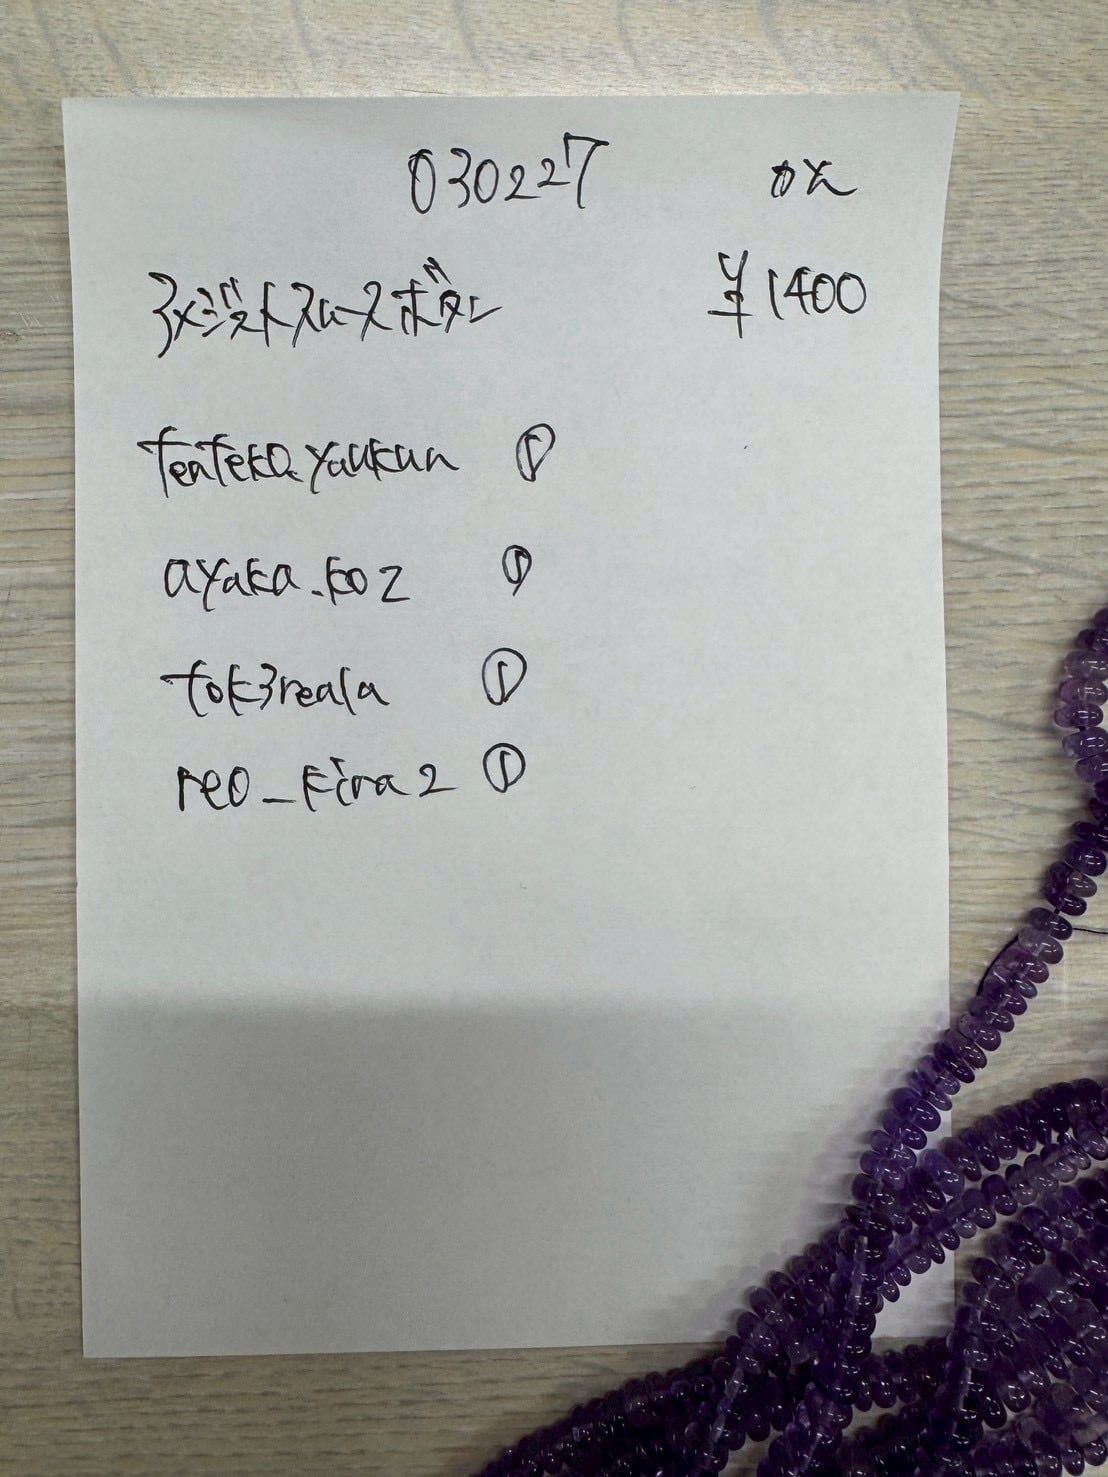 030227
アメジストスムースボタン ¥1400
tenteko.yaukun ①
ayaka.koz ①
tok3reala ①
reo_kira2 ①